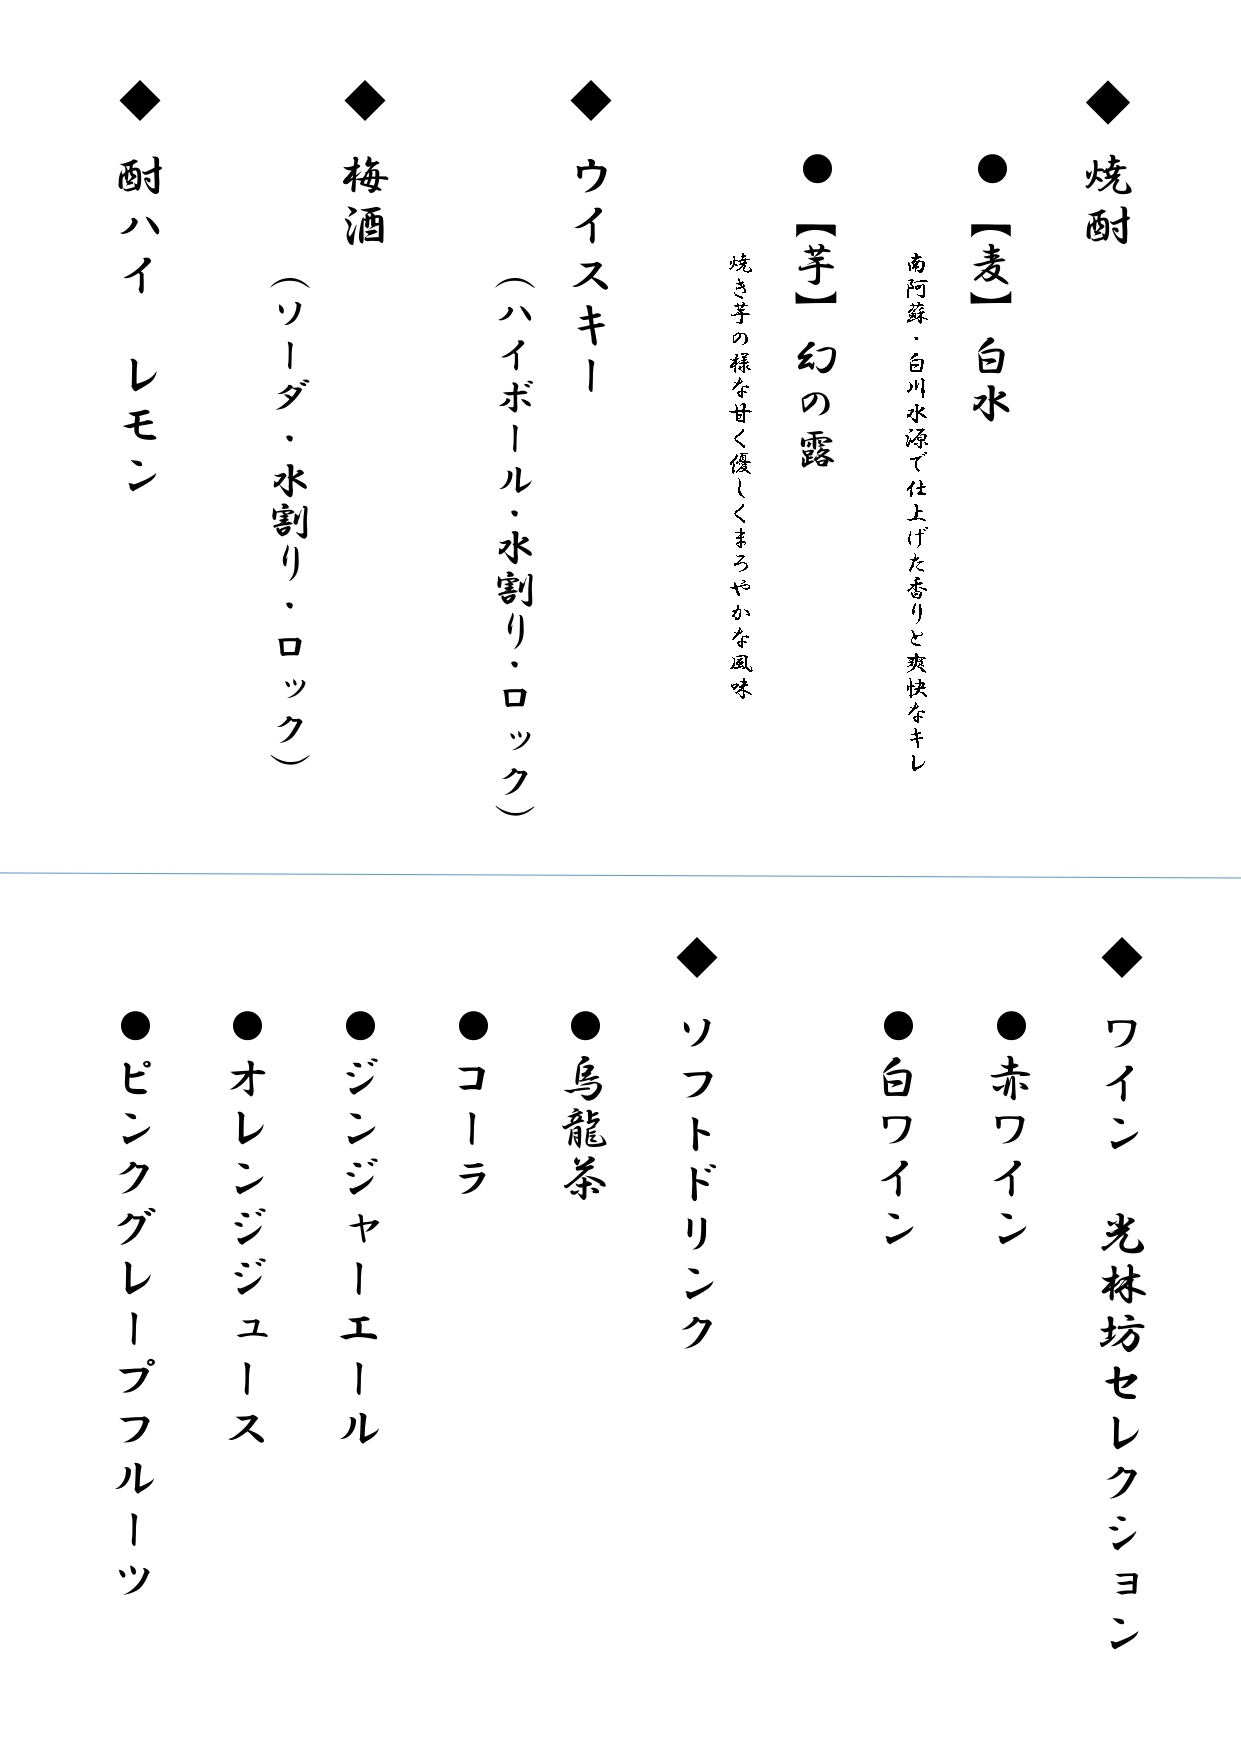 ◆ 焼酎
● 【麦】 白水
南阿蘇・白川水源で仕上げた香りと爽快なキレ
● 【芋】 幻の露
焼き芋の様な甘く優しくまろやかな風味
◆ ウイスキー
（ハイボール・水割り・ロック）
◆ 梅酒
（ソーダ・水割り・ロック）
◆ 酎ハイ　レモン
◆ ワイン　光林坊セレクション
● 赤ワイン
● 白ワイン
◆ ソフトドリンク
● 烏龍茶
● コーラ
● ジンジャーエール
● オレンジジュース
● ピンクグレープフルーツ